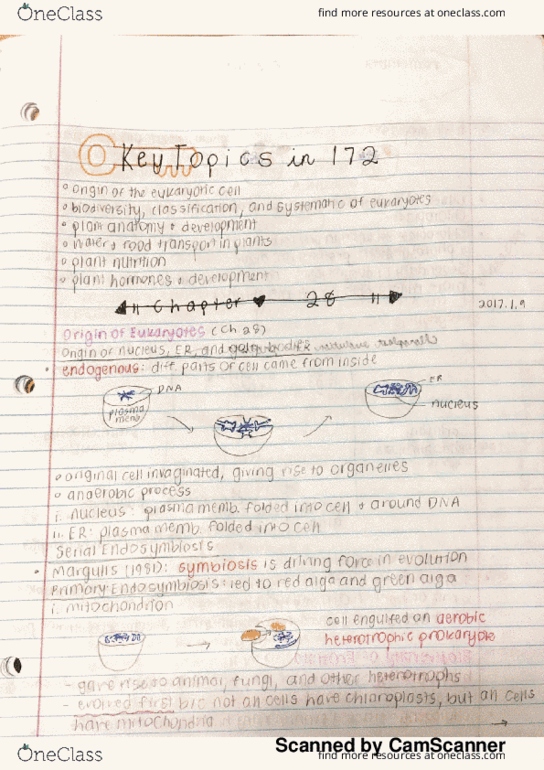 OneClass
find more resources at oneclass.com
Key Topics in 172
origin of the eukaryotic cell
biodiversity, classification, and systematic of eukaryotes
plant anatomy + development
water + food transport in plants
plant nutrition
plant hormones + development
Chapter 28
2017.1.9
Origin of Eukaryotes (Ch 28)
Origin of nucleus, ER, and golgi bodies
endogenous: diff parts of cell came from inside
DNA
ER
plasma memb
nucleus
original cell invaginated, giving rise to organelles
anaerobic process
i. nucleus: plasma memb. folded into cell + around DNA
ii. ER: plasma memb. folded into cell
Serial Endosymbiosis
Margulis (1981): symbiosis is driving force in evolution
Primary Endosymbiosis: led to red alga and green alga
i. mitochondrion
cell engulfed an aerobic
heterotrophic prokaryote
- gave rise to animal, fungi, and other heterotrophs
- evolved first b/c not all cells have chloroplasts, but all cells
have mitochondria
Scanned by CamScanner
OneClass
find more resources at oneclass.com